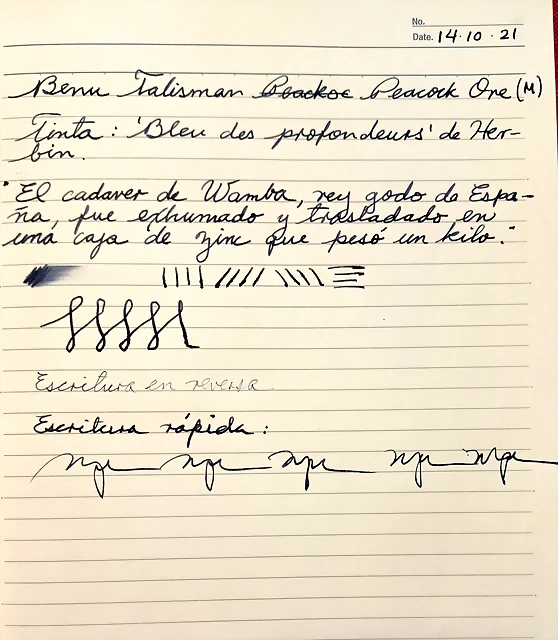 No.
Date. 14·10·21
Benu Talisman Peacock Ore (M)
Tinta: 'Bleu des profondeurs' de Her-
bin.
"El cadaver de Wamba, rey godo de Espa-
ña, fue exhumado y trasladado en
una caja de zinc que pesó un kilo."
Escritura en reversa.
Escritura rápida: